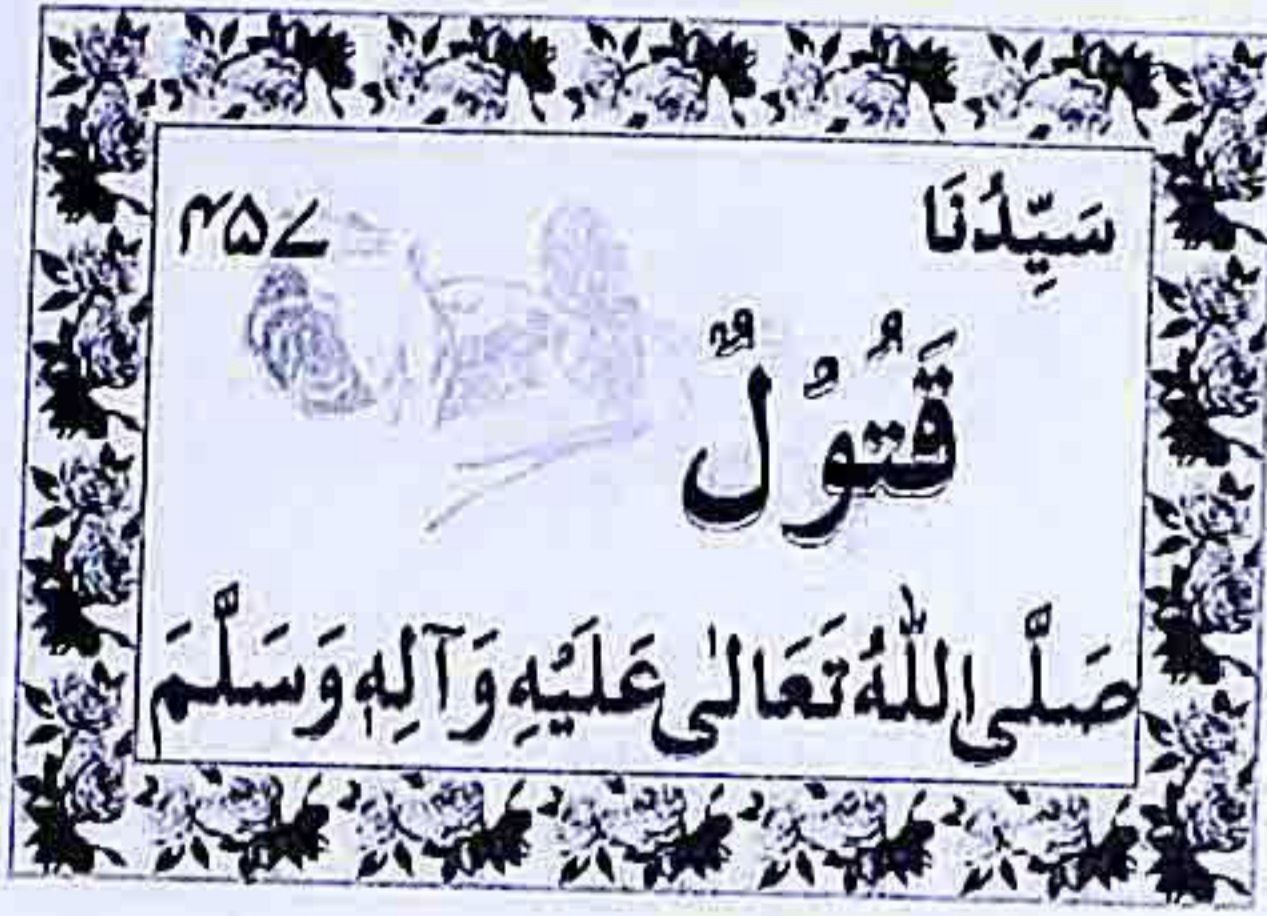 سَيِّدُنَا ۴۵۷
قَتُوْلٌ
صَلَّى اللّٰهُ تَعَالٰى عَلَيْهِ وَآلِهٖ وَسَلَّمَ